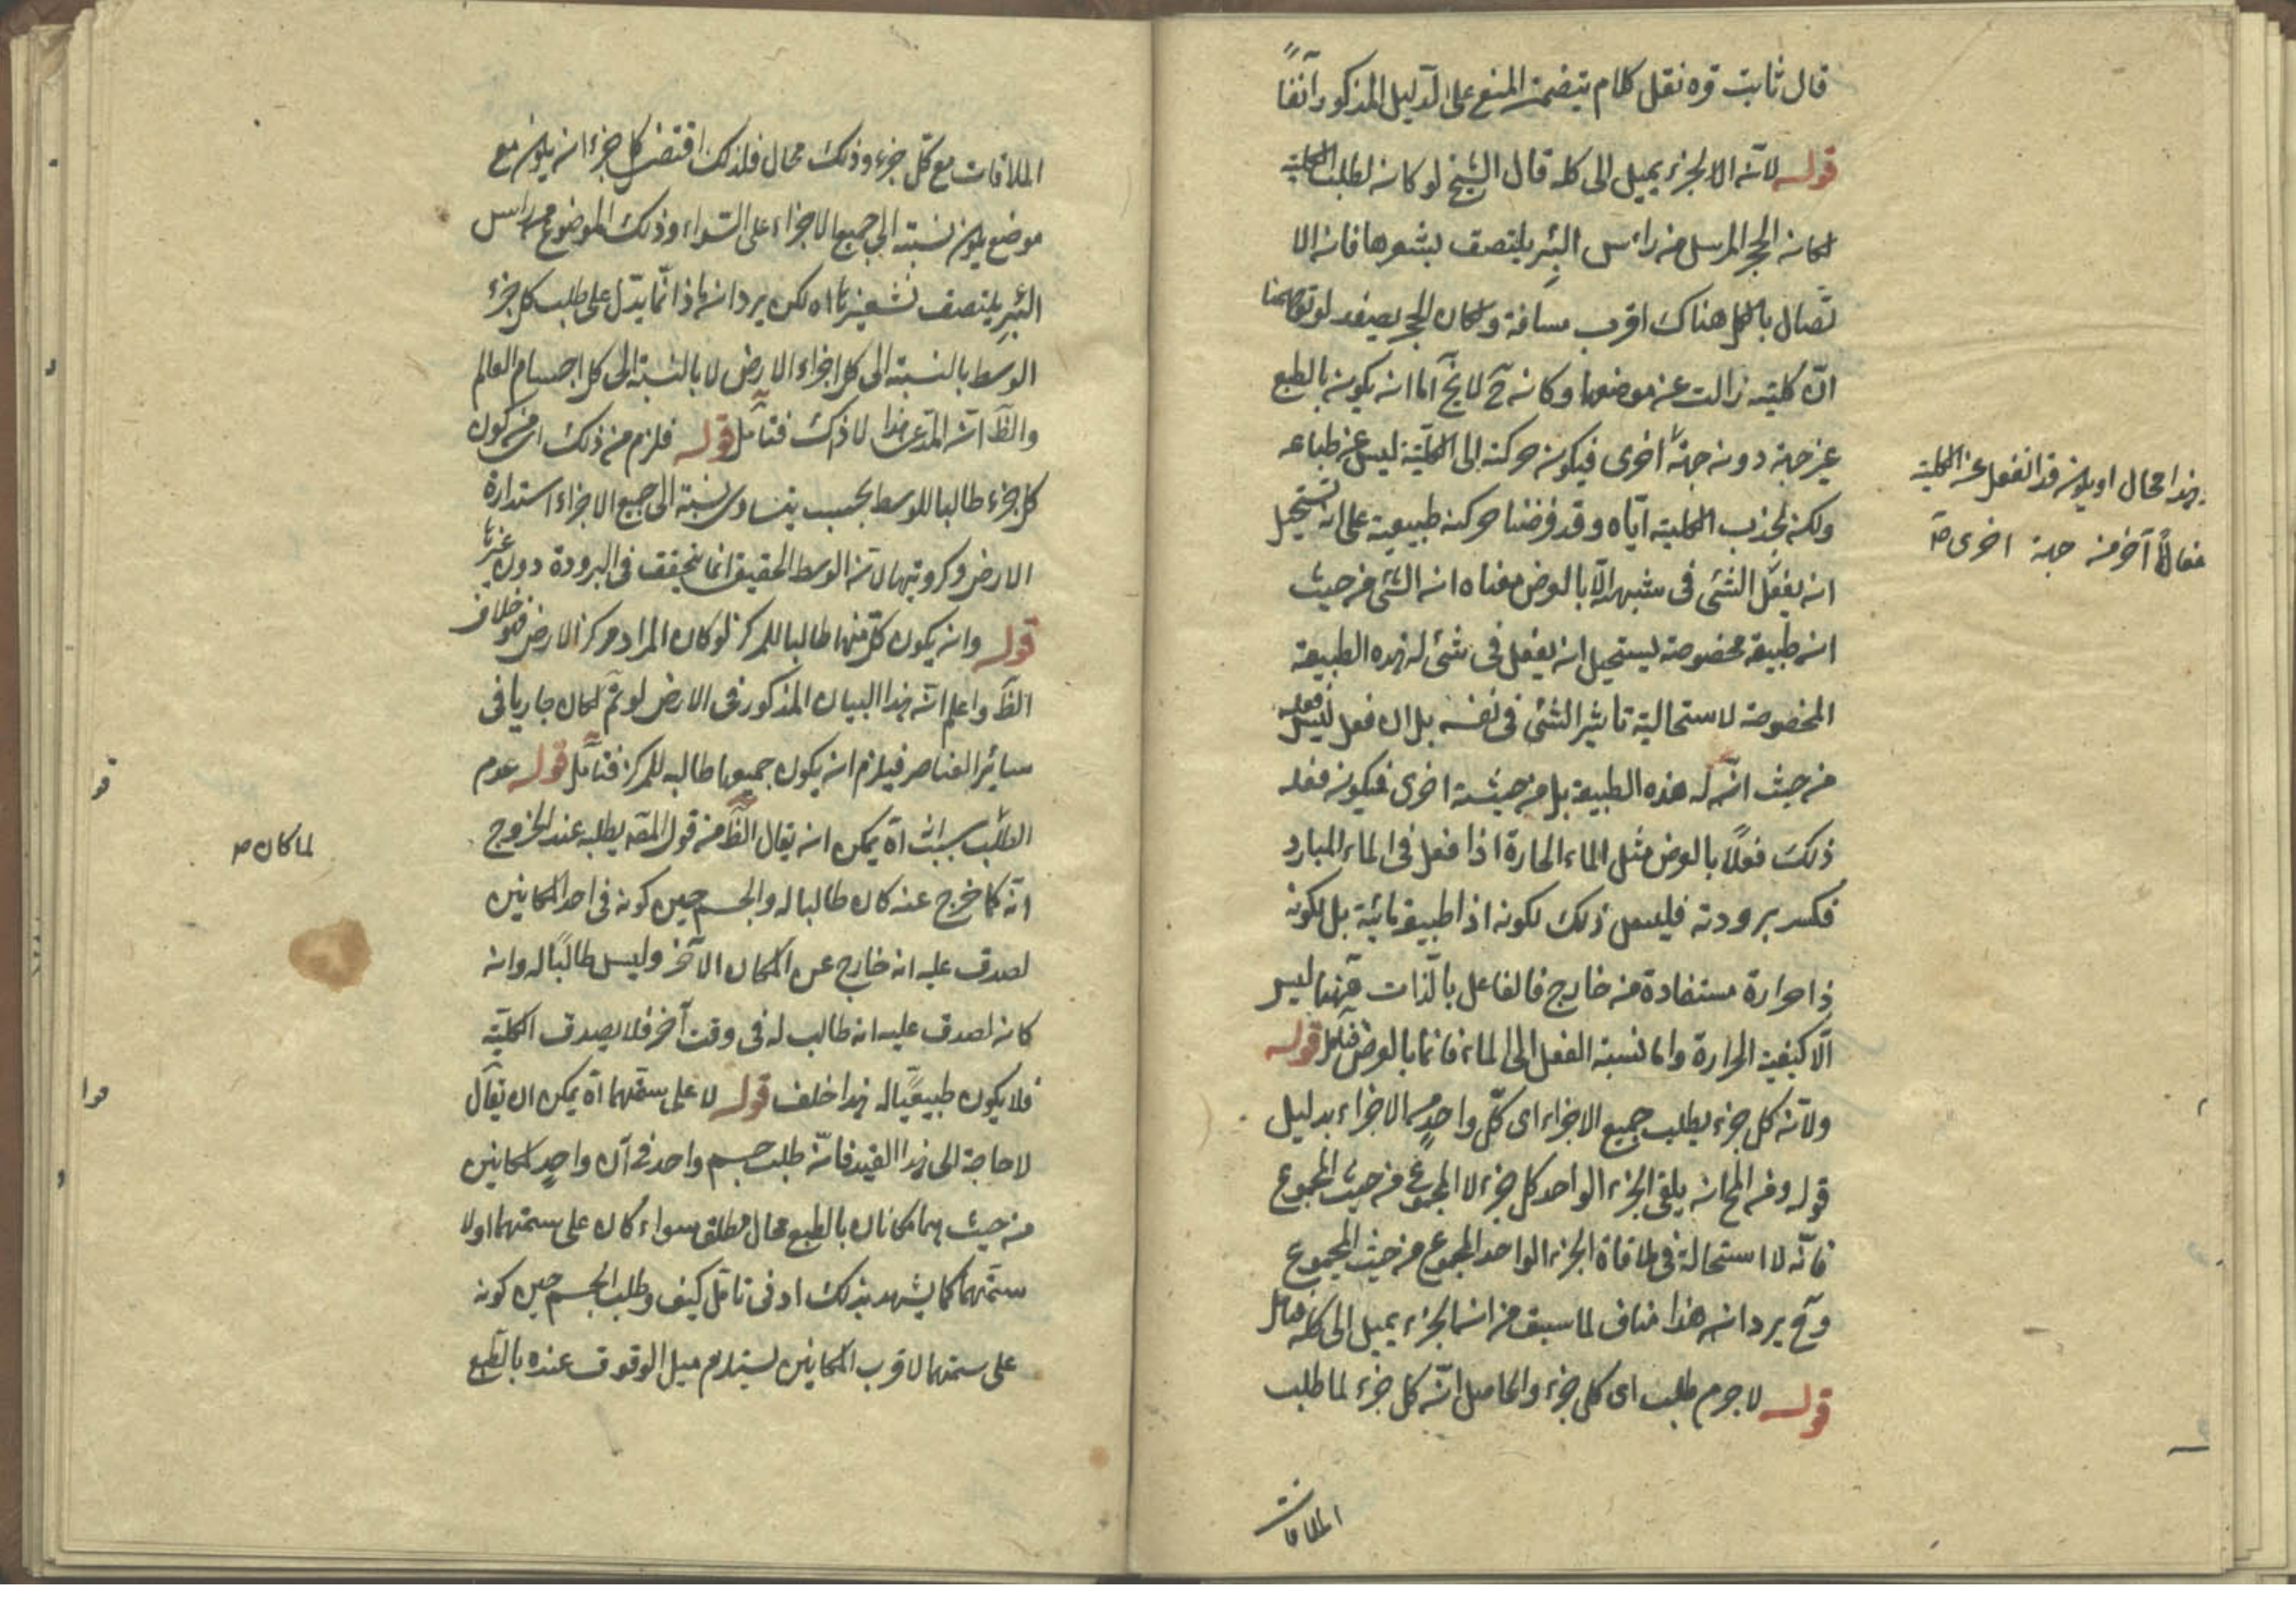 قال ثابت قوه نقل كلام يتضمن المنع على الدليل المذكور آنفاً
قوله لانه الا لجزء يميل الى كله قال الشيخ لو كان لطلب الكلية
لكان الحجر المرسل من رأس البئر يلتصق بشفيرها فان الا
تصال بالكل هناك اقرب مسافة ولكان الحجر يصعد لو توهمنا
ان كليته زالت عن موضعها وكان ح لا يخ اما ان يكون بالطبع
عن جهة دون جهة اخرى فيكون حركته الى الكلية ليس عن طباعه
ولكن لجذب الكلية اياه وقد فرضنا حركته طبيعية على انه يستحيل
ان يفعل الشئ في شبهه الا بالعرض معناه ان الشئ من حيث
انه طبيعة مخصوصة يستحيل ان يفعل في شئ له هذه الطبيعة
المخصوصة لاستحالية تأثير الشئ في نفسه بل ان فعل فليس فعله
من حيث انه له هذه الطبيعة بل من حيثية اخرى فيكون فعله
ذلك فعلاً بالعرض مثل الماء الحارة اذا فعل في الماء البارد
فكسر برودته فليس ذلك لكونه اذا طبيعة مائية بل لكونه
ذا حرارة مستفادة من خارج فالفاعل بالذات ههنا ليس
الا كيفية الحرارة واما نسبة الفعل الى الماء فانما بالعرض فتأمل قوله
ولانه كل جزء يطلب جميع الاجزاء اى كل واحد من الاجزاء بدليل
قوله ومن المح ان يلقى الجزء الواحد كل جزء لا المجموع من حيث المجموع
فانه لا استحالة في ملاقاة الجزء الواحد المجموع من حيث المجموع
وح يرد ان هذا مناف لما سبق من ان الجزء يميل الى كله فتأمل
قوله لاجرم طلب اى كل جزء والحاصل ان كل جزء لما طلب
الملاقات
هذا محال او يكون قد انفعل عن الكلية
فعالاً آخر من جهة اخرى صح
الملاقات مع كل جزء وذلك محال فلذلك اقتضى كل جزء ان يكون مع
موضع يكون نسبته الى جميع الاجزاء على السواء وذلك الموضوع
البئر يلتصق بشفيرها اه لكن يرد ان هذا انما يدل على طلب كل جزء
الوسط بالنسبة الى كل اجزاء الارض لا بالنسبة الى كل اجسام العالم
والظ ان المدعى هذا لا ذاك فتأمل قوله فلزم من ذلك اى من كون
كل جزء طالبا للوسط بحيث يتساوى نسبته الى جميع الاجزاء استدارة
الارض وكرويتها لان الوسط الحقيقى انما يتحقق في البرودة دون غيرها
قوله وان يكون كل منها طالبا للمركز لو كان المراد مركز الارض فهو خلاف
الظ واعلم ان هذا البيان المذكور في الارض لو تم لكان جاريا في
سائر العناصر فيلزم ان يكون جميعها طالبه للمركز فتأمل قوله عدم
الطلب بسبب انه اه يمكن ان يقال الظ من قول المص يطلبه عند الخروج
انه كما خرج عنه كان طالبا له والجسم حين كونه في احد المكانين
لصدق عليه انه خارج عن المكان الآخر وليس طالباً له وان
كان لصدق عليه انه طالب له في وقت آخر فلا يصدق الكلية
فلا يكون طبيعياً له هذا خلف قوله لا على سمتهما اه يمكن ان يقال
لا حاجة الى هذا القيد فان طلب جسم واحد في آن واحد لمكانين
من حيث هما مكانان بالطبع محال مطلق سواء كان على سمتهما اولا
سمتهما كما يشهد بذلك ادنى تأمل كيف وطلب الجسم حين كونه
على سمتهما لاقرب المكانين يستلزم ميل الوقوف عنده بالطبع
لما كان صح